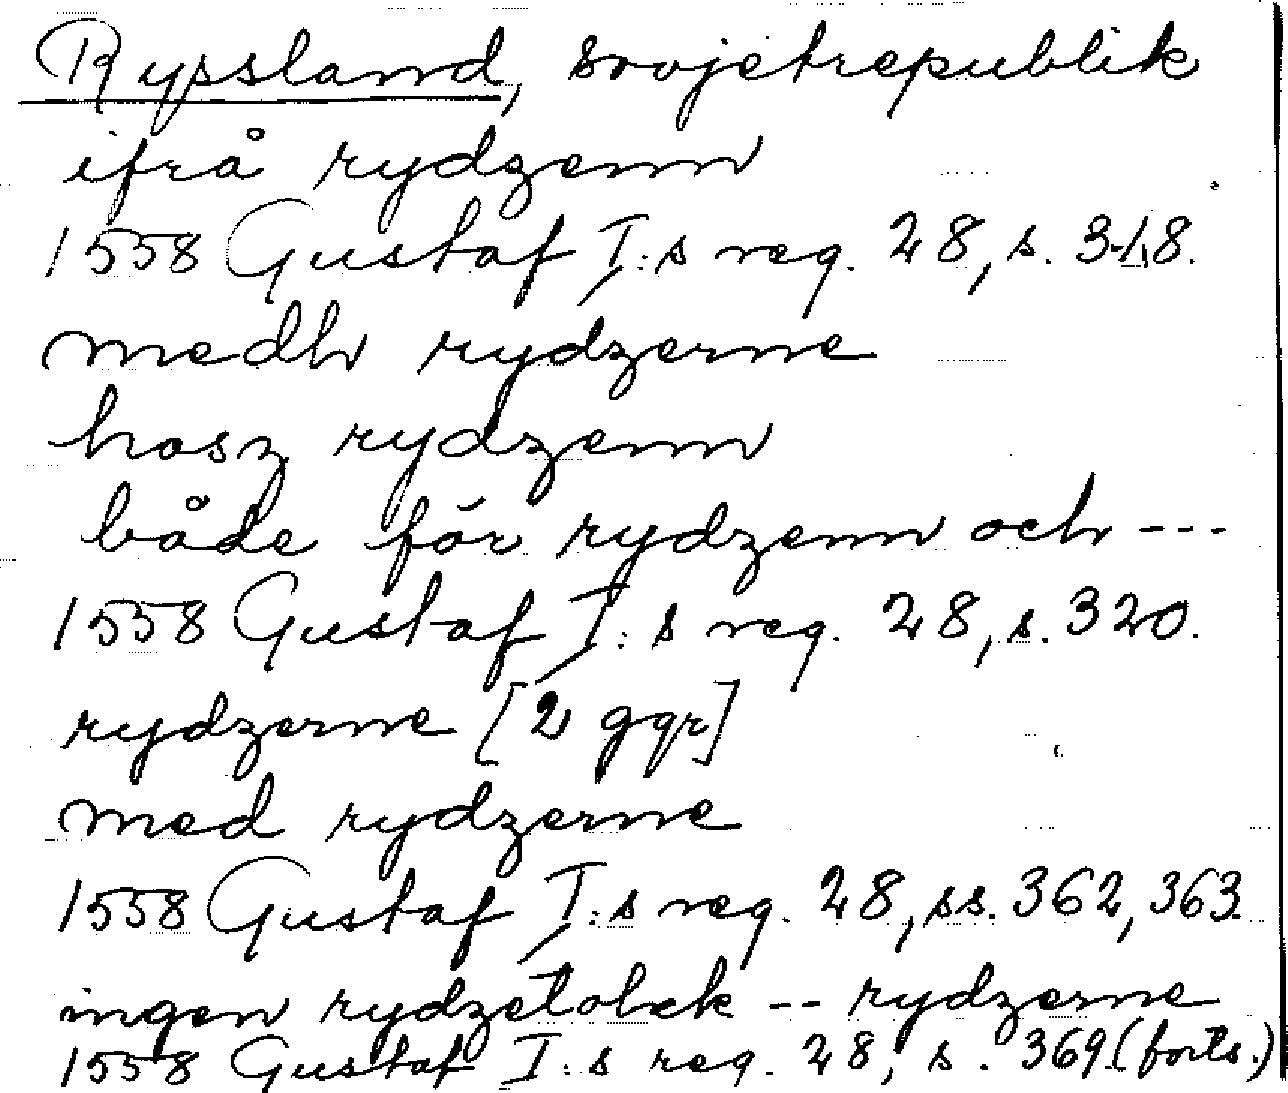 Ryssland, sovjetrepublik
ifrå rydzenn
1558 Gustaf I:s reg. 28, s. 318.
medh rydzerne
hosz rydzenn
både för rydzenn och ---
1558 Gustaf I:s reg. 28, s. 320.
rydzerne [2 ggr]
med rydzerne
1558 Gustaf I:s reg. 28, ss. 362, 363.
ingen rydzetolck -- rydzerne
1558 Gustaf I:s reg. 28, s. 369 (forts.)